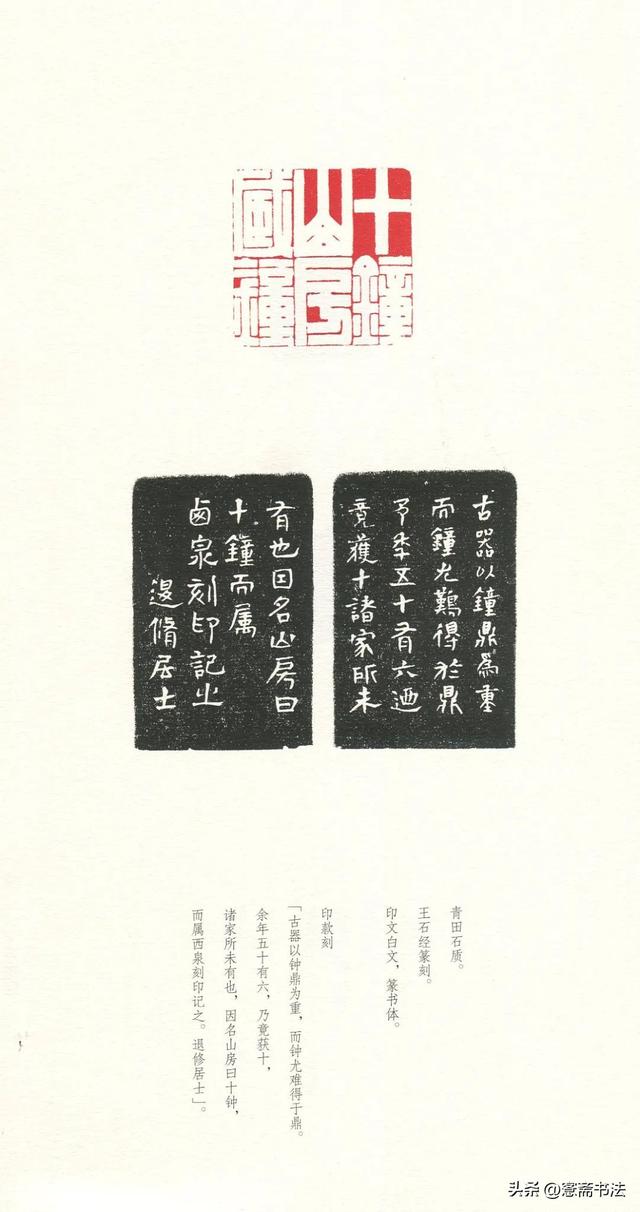 十鐘
山房
古器以鐘鼎爲重
而鐘尤難得於鼎
予秊五十有六迺
竟獲十諸家所未
有也因名山房曰
十鐘而属
卥泉刻印記之
退脩居士
青田石质。
王石经篆刻。
印文白文，篆书体。
印款刻
「古器以钟鼎为重，而钟尤难得于鼎。
余年五十有六，乃竟获十，
诸家所未有也，因名山房曰十钟，
而属西泉刻印记之。退修居士」。
头条 @窓斋书法